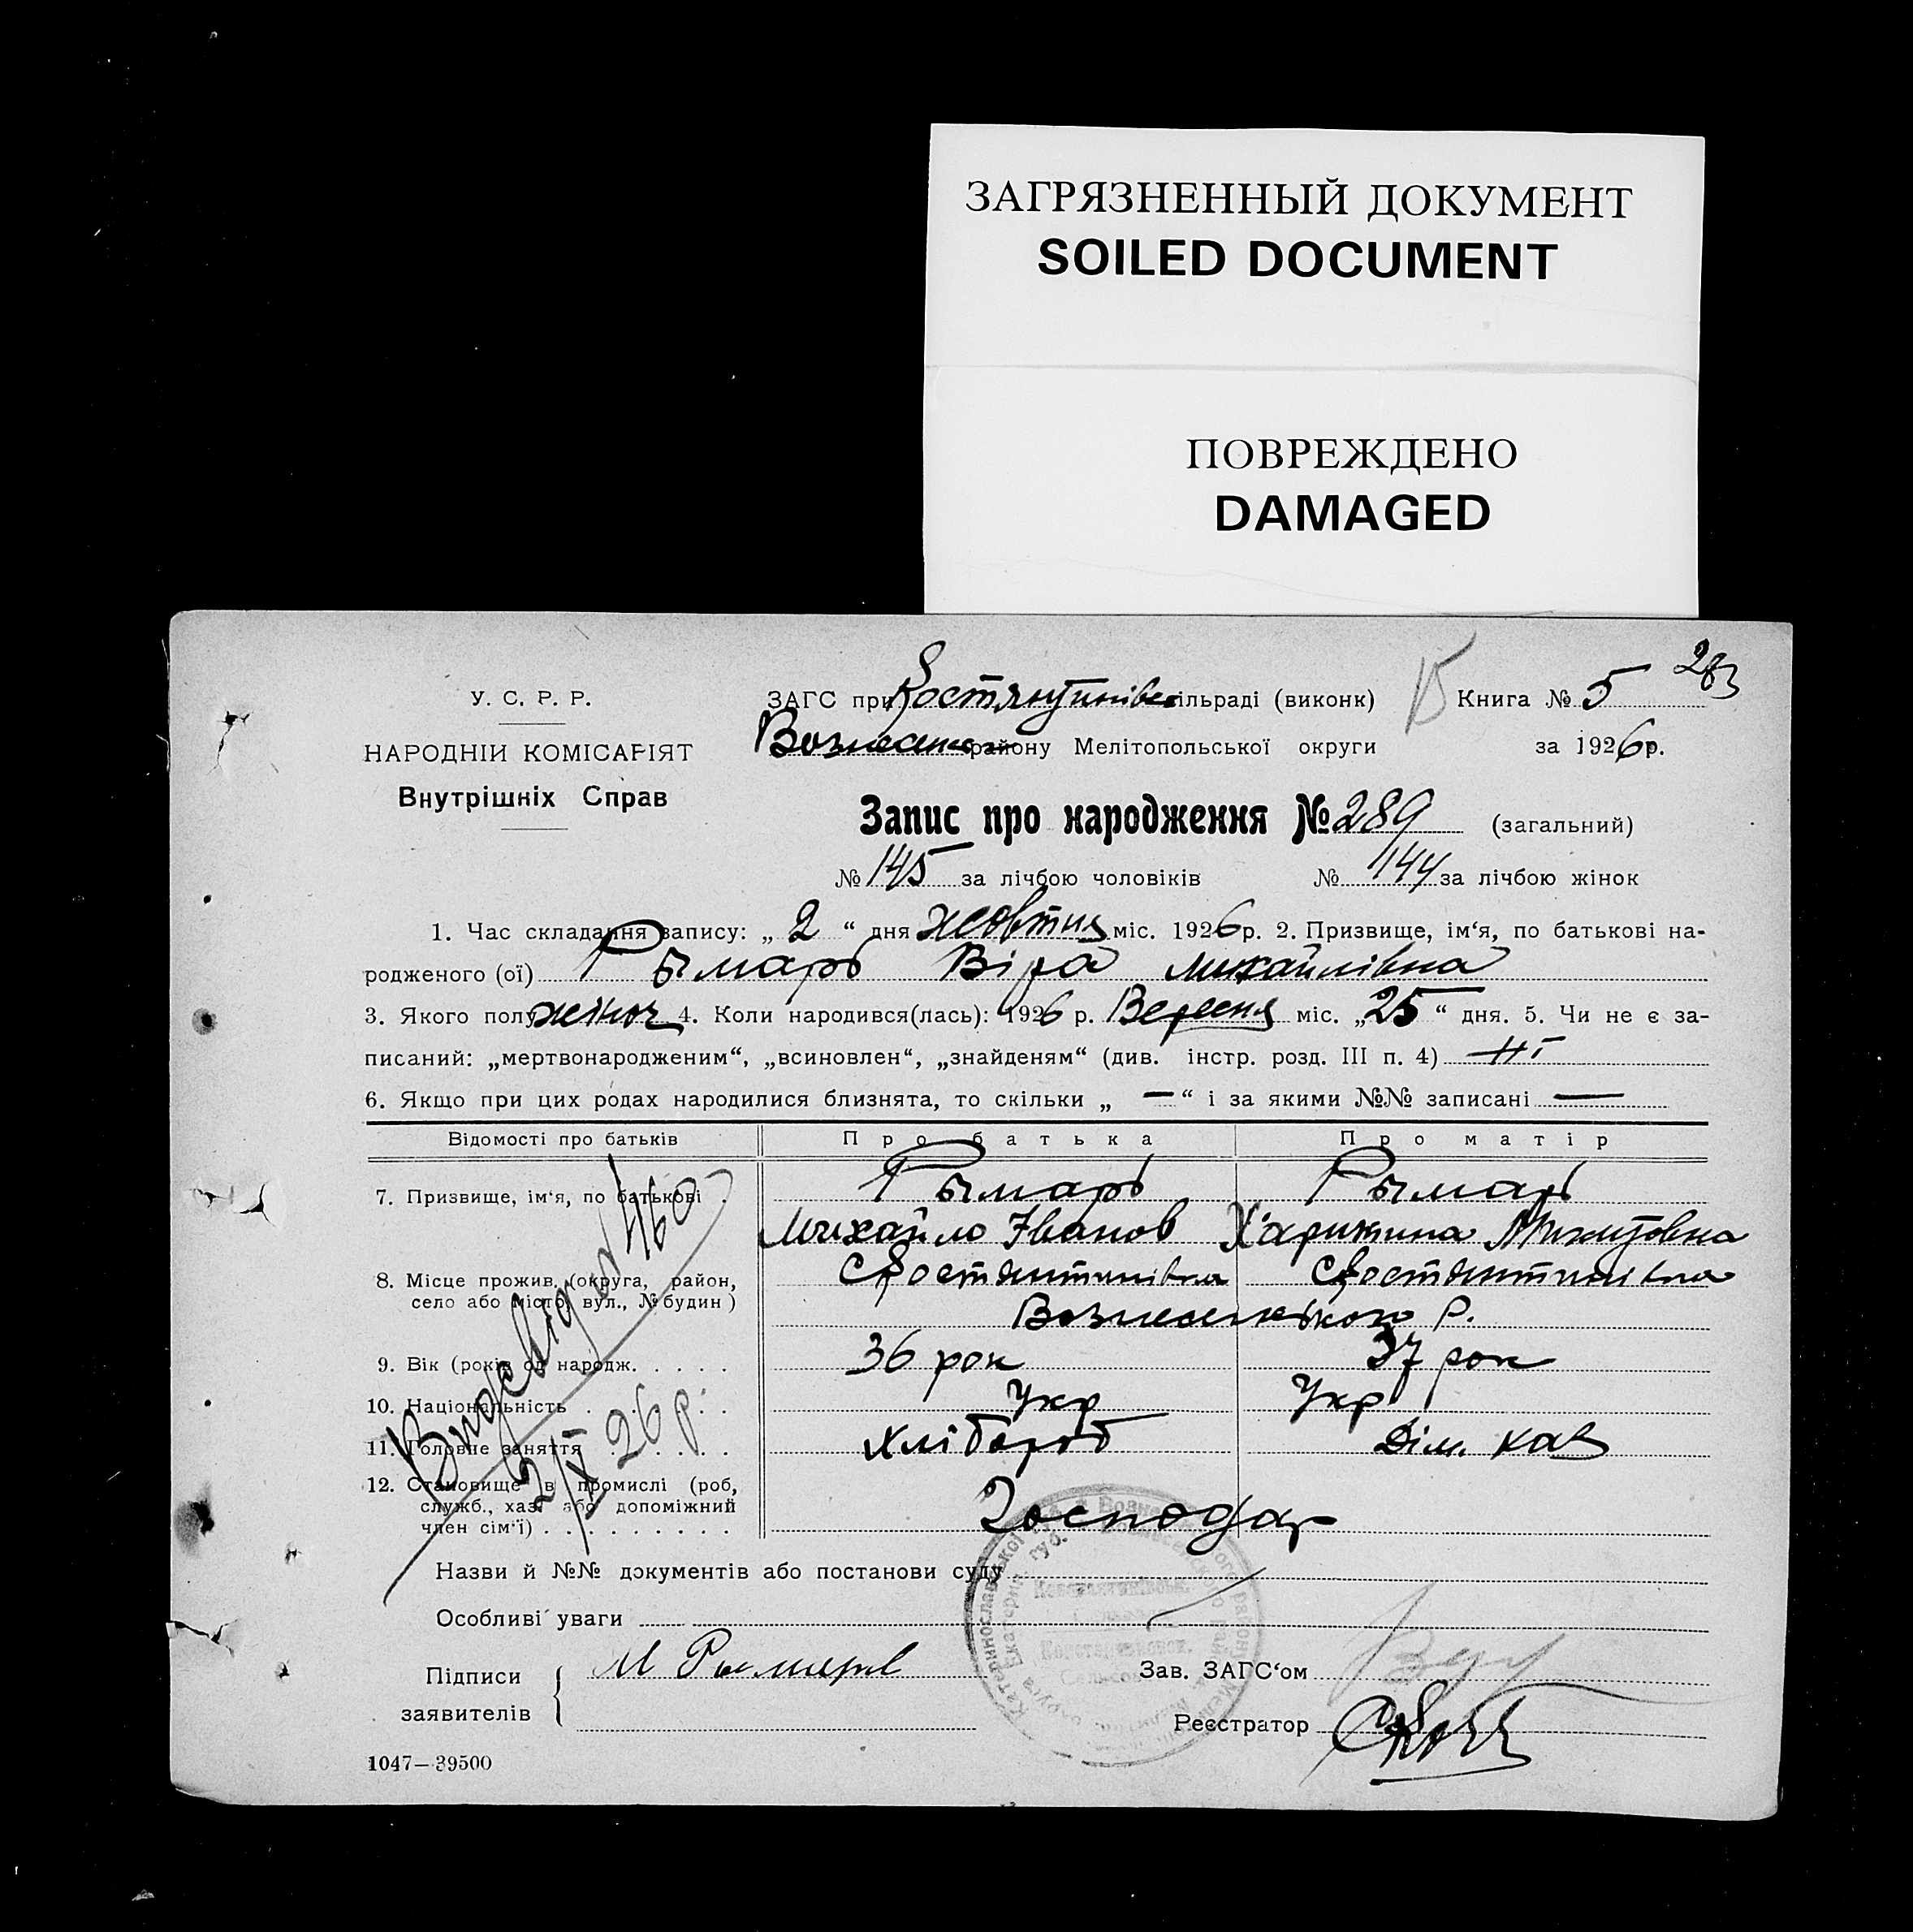 ЗАГРЯЗНЕННЫЙ ДОКУМЕНТ
SOILED DOCUMENT
ПОВРЕЖДЕНО
DAMAGED
283
У. С. Р. Р.
ЗАГС при Костянтинівс сільраді (виконк) Книга № 5
НАРОДНІЙ КОМІСАРІЯТ
Вознесенс району Мелітопольської округи за 1926р.
Внутрішніх Справ
Запис про народження № 289 (загальний)
№ 145 за лічбою чоловіків № 144 за лічбою жінок
1. Час складання запису: „ 2 “ дня жовтня міс. 1926р. 2. Призвище, ім‘я, по батькові на-
родженого (ої) Рымарь Віра Михайлівна
3. Якого полу жіноч 4. Коли народився(лась): 1926 р. Вересня міс. „25“ дня. 5. Чи не є за-
писаний: „мертвонародженим“, „всиновлен“, „знайденям“ (див. інстр. розд. III п. 4) ні
6. Якщо при цих родах народилися близнята, то скільки „ — “ і за якими №№ записані —
Відомості про батьків Про батька Про матір
7. Призвище, ім‘я, по батькові . Рымарь Рымарь
Михайло Іванов Харитина Микитовна
8. Місце прожив. (округа, район, с Костянтинівка с Костянтинівка
село або місто, вул., № будин)
Вознесенського Р.
9. Вік (років од народж. . . . . 36 рок 37 рок
10. Національність . . . . . . Укр Укр
11. Головне заняття . . . . . . Хлібороб Дім. хаз
12. Становище в промислі (роб,
служб., хаз. або допоміжний Господар
член сім‘ї) . . . . . . . . .
26 р.
Назви й №№ документів або постанови суду
Особливі уваги
Підписи М Рымарь Зав. ЗАГС‘ом
заявителів
Реєстратор
1047—39500